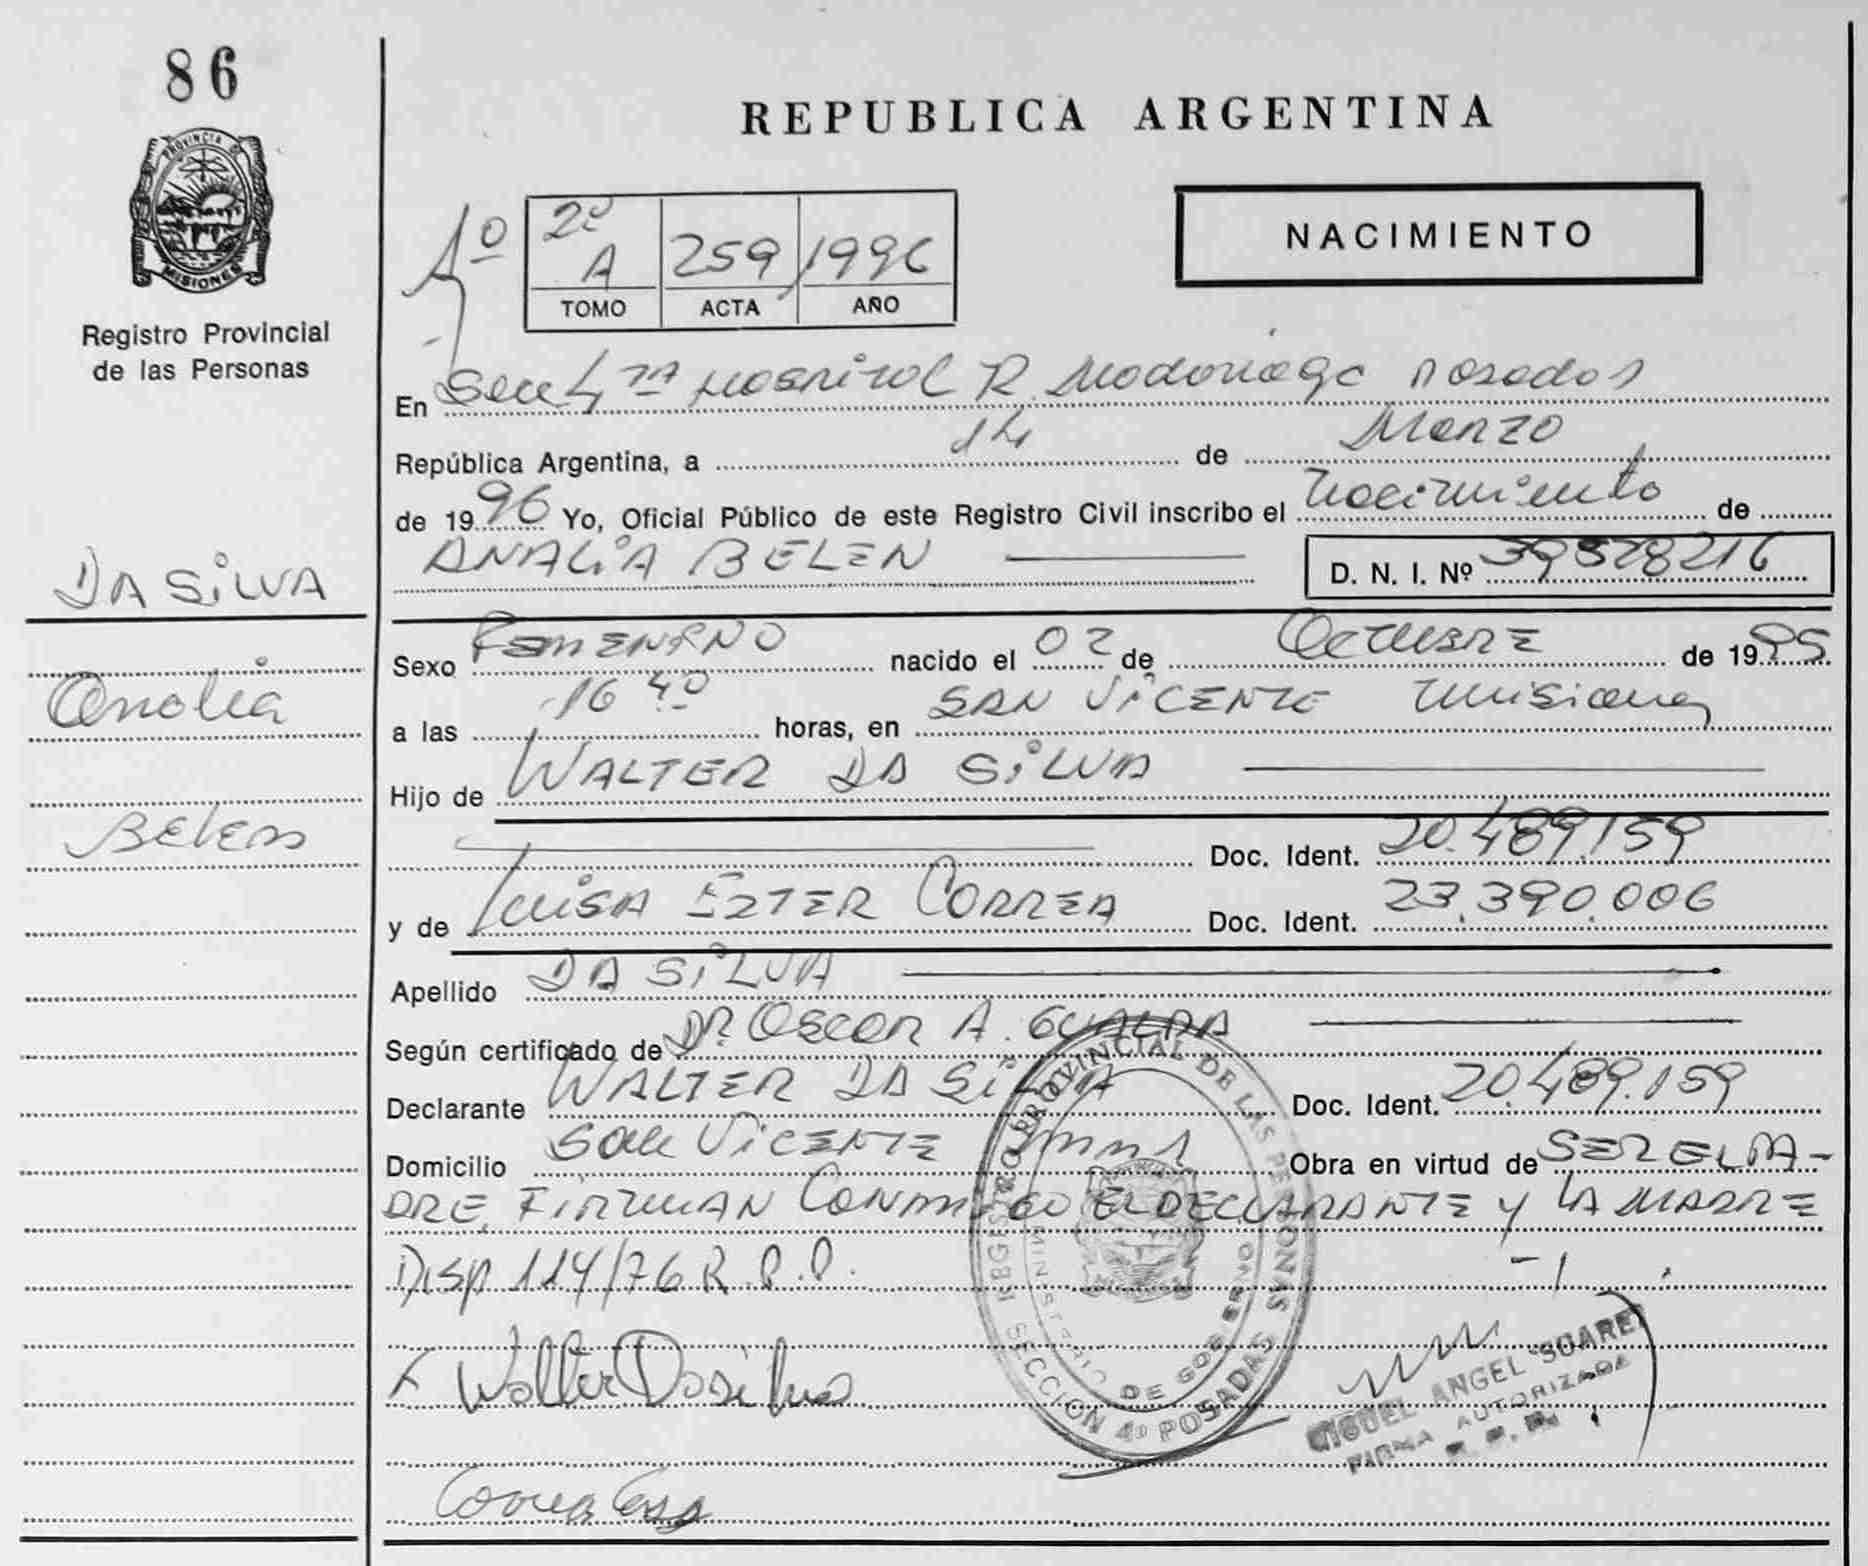 86
PROVINCIA D
MISIONES
Registro Provincial
de las Personas
REPUBLICA ARGENTINA
NACIMIENTO
1º
2º A 259 1996
TOMO ACTA AÑO
En Secc 4ta Hospital R. Madariaga Posadas
República Argentina, a 14 de Marzo
de 1996 Yo, Oficial Público de este Registro Civil inscribo el Nacimiento de
ANALIA BELEN
D. N. I. Nº 39528216
DA SILVA
Analia
Belen
Sexo FEMENINO nacido el 02 de OCTUBRE de 1995
a las 16 40 horas, en SAN VICENTE Misiones
Hijo de WALTER DA SILVA
Doc. Ident. 20.489.159
y de LUISA EZTER CORREA Doc. Ident. 23.390.006
Apellido DA SILVA
Según certificado de DR. OSCAR A. GUALDA
Declarante WALTER DA SILVA Doc. Ident. 20.489.159
Domicilio San VICENTE Mnes Obra en virtud de SER EL PA-
DRE, FIRMAN CONMIGO EL DECLARANTE Y LA MADRE
Disp 114/76 R.P.P.
x Walter Dasilva
Correa
REGISTRO PROVINCIAL DE LAS PERSONAS
MINISTERIO DE GOBIERNO
SECCION 4ª POSADAS
MIGUEL ANGEL SUAREZ
FIRMA AUTORIZADA
R. P. P.